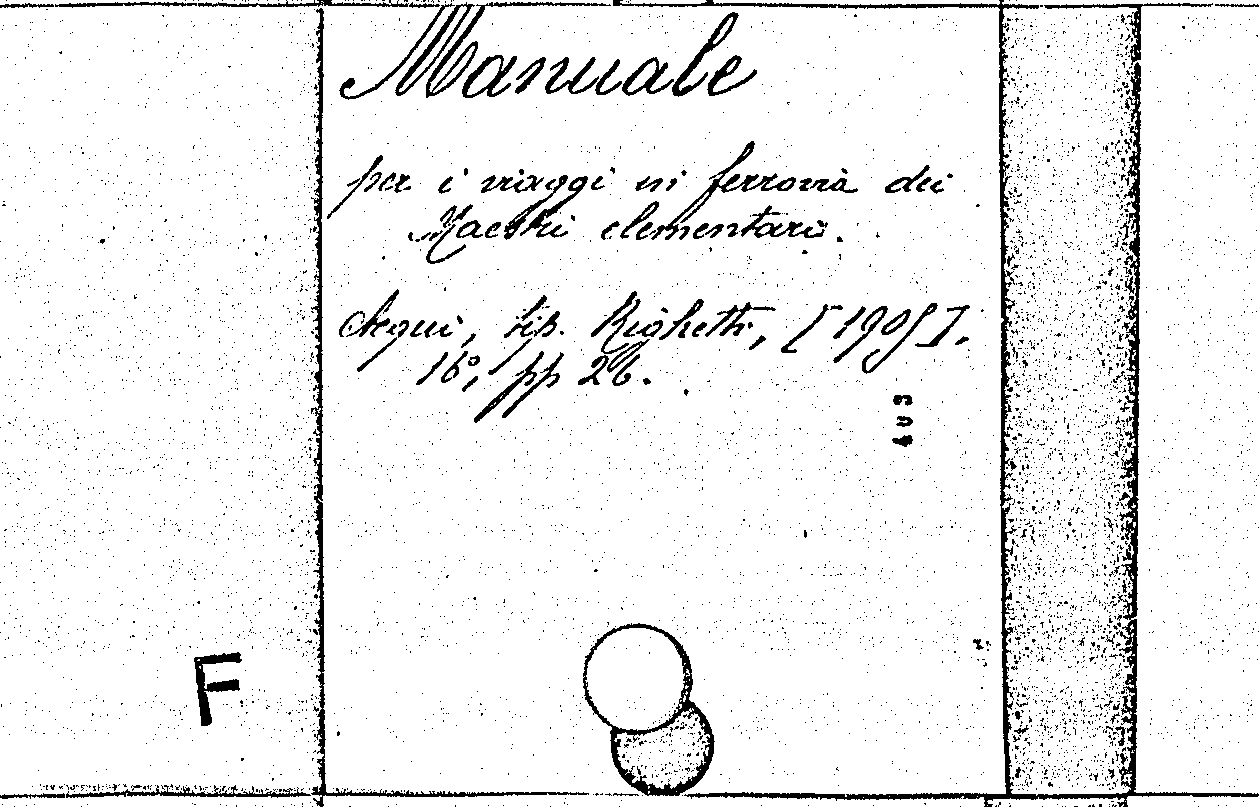 Manuale
per i viaggi in ferrovia dei
Maestri elementari.
Acqui, tip. Righetti, [1905].
16°, pp 26.
F